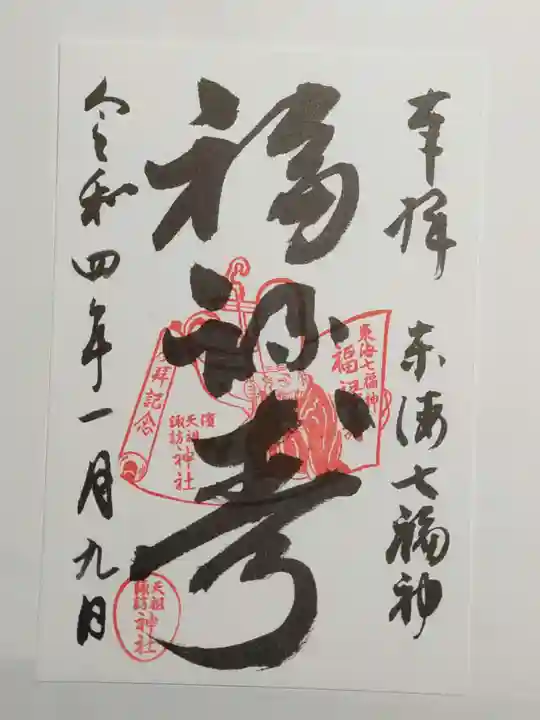 奉拝 東海七福神
福禄寿
令和四年一月九日
東海七福神
福禄
拝記念
濱
天祖
諏訪
神社
天祖
諏訪
神社